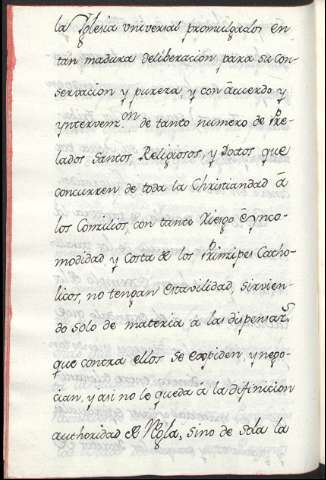 la Yglesia universal promulgados en
tan madura deliberación para su con
servacion y pureza y con acuerdo y
yntervenon de tanto numero de Pre-
lados Santos, Religiosos, y Doctos que
concurren de toda la Christiandad á
los Concilios, con tanto Riesgo e ynco-
modidad y costa de los Principes Catho-
licos, no tengan estavilidad, sirvien
do solo de materia á las dispensars
que contra ellos se expiden, y nego-
cian, y asi no le queda á la difinicion
authoridad de Regla, sino de sola la